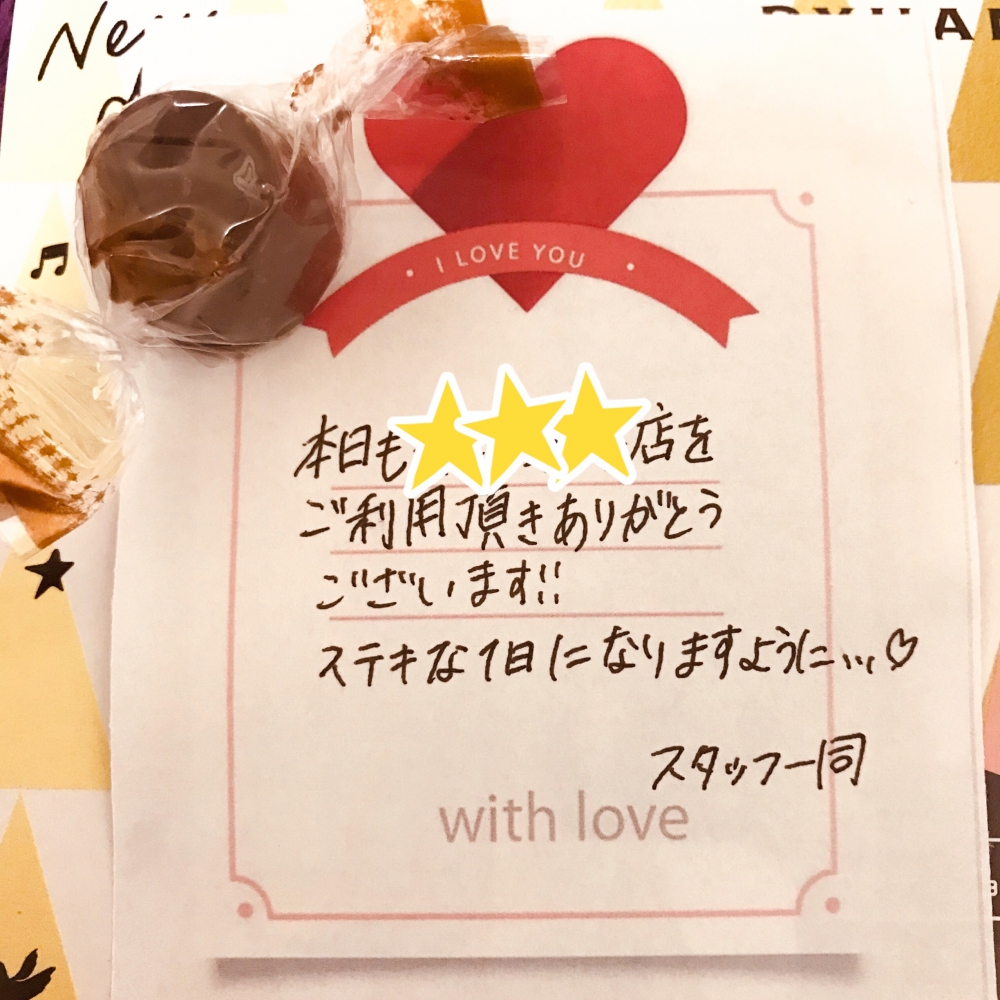 Ne
I LOVE YOU
本日も 店を
ご利用頂きありがとう
ございます!!
ステキな1日になりますように...♡
スタッフ一同
with love